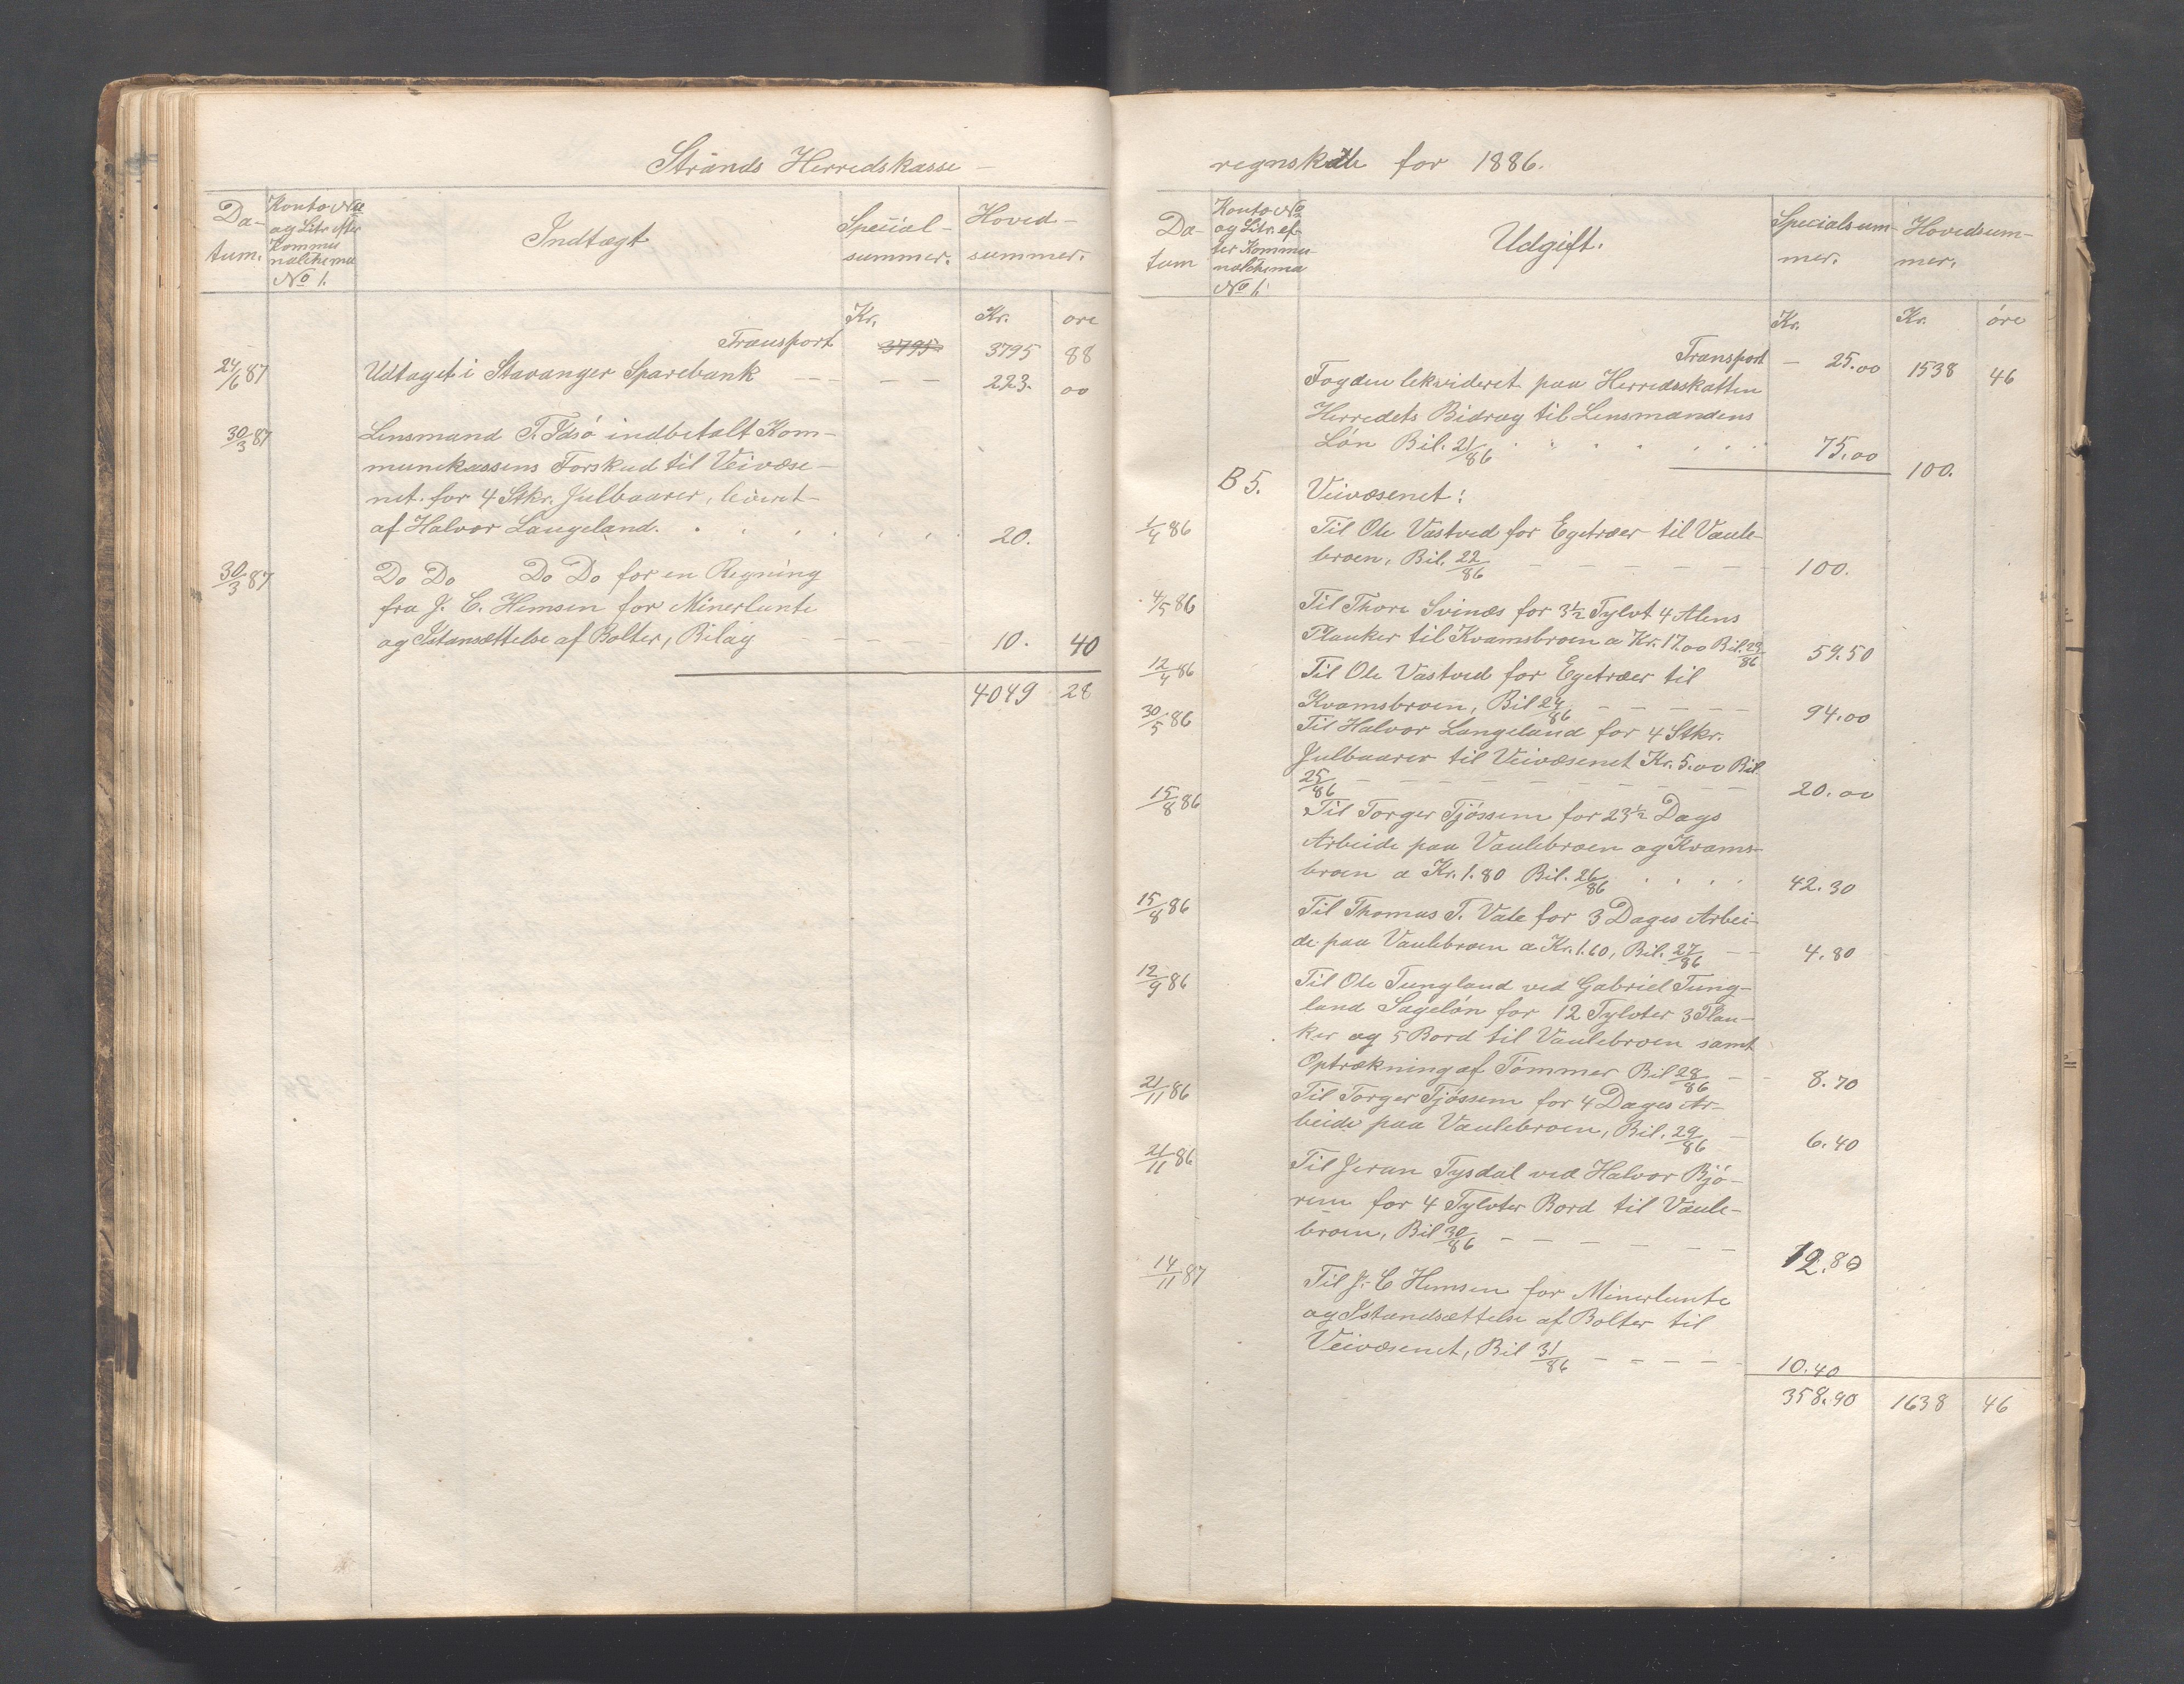 Strands Herredskasse –
Da-
tum.
Konto No
og Litr. efter
Kommu
nalskema
No 1.
Indtægt
Special-
summer.
Hoved-
summer.
Kr. Kr. øre
Transport 3795 3795 88
24/6 87 Udtaget i Stavanger Sparebank — — — 223. 00
30/3 87 Lensmand T. Idsö indbetalt Kom-
munekassens Forskud til Veivæse-
net for 4 Stkr. Julbaarer, leveret
af Halvor Langeland. 20.
30/3 87 Do Do Do Do for en Regning
fra J. C. Hemsen for Minerlunte
og Istansættelse af Bolter, Bilag — — — 10. 40
4049 28
regnskab for 1886.
Da-
tum
Konto No
og Litr. ef-
ter Kommu-
nalskema
No 1.
Udgift.
Specialsum-
mer.
Hovedsum-
mer.
Kr. Kr. øre
Transport — 25.00 1538 46
Fogden likvideret paa Herredsskatten
Herredets Bidrag til Lensmandens
Løn Bil. 21/86 75.00
100.
B 5. Veivæsenet:
1/4 86 Til Ole Vastved for Egetræer til Vaule-
broen, Bil. 22/86 — — — — — — 100.
4/5 86 Til Thore Svinæs for 3½ Tylvt 4 Alens
Planker til Kvamsbroen a Kr. 17.00 Bil. 23/86 59.50
12/4 86 Til Ole Vastved for Egetræer til
Kvamsbroen, Bil 24/86 — — — — — 94.00
30/5 86 Til Halvor Langeland for 4 Stkr.
Julbaarer til Veivæsenet Kr. 5.00 Bil.
25/86 — — — — — — — — 20.00
15/8 86 Til Torger Tjössem for 23½ Dags
Arbeide paa Vaulebroen og Kvams-
broen a Kr. 1.80 Bil. 26/86 42.30
15/8 86 Til Thomas T. Vale for 3 Dages Arbei-
de paa Vaulebroen a Kr. 1.60, Bil. 27/86 — — 4.80
12/9 86 Til Ole Tungland ved Gabriel Tung-
land Sagelön for 12 Tylvter 3 Plan-
ker og 5 Bord til Vaulebroen samt
Optrækning af Tömmer Bil 28/86 — — 8.70
21/11 86 Til Torger Tjössem for 4 Dages Ar-
beide paa Vaulebroen, Bil. 29/86 — 6.40
21/11 86 Til Jeran Tysdal ved Halvor Bjö-
rem for 4 Tylvter Bord til Vaule-
broen, Bil 30/86 — — — — — — 12.80
14/11 87 Til J. C Hemsen for Minerlunte
og Istandsættelse af Bolter til
Veivæsenet, Bil 31/86 — — — — — 10.40
358.90 1638 46